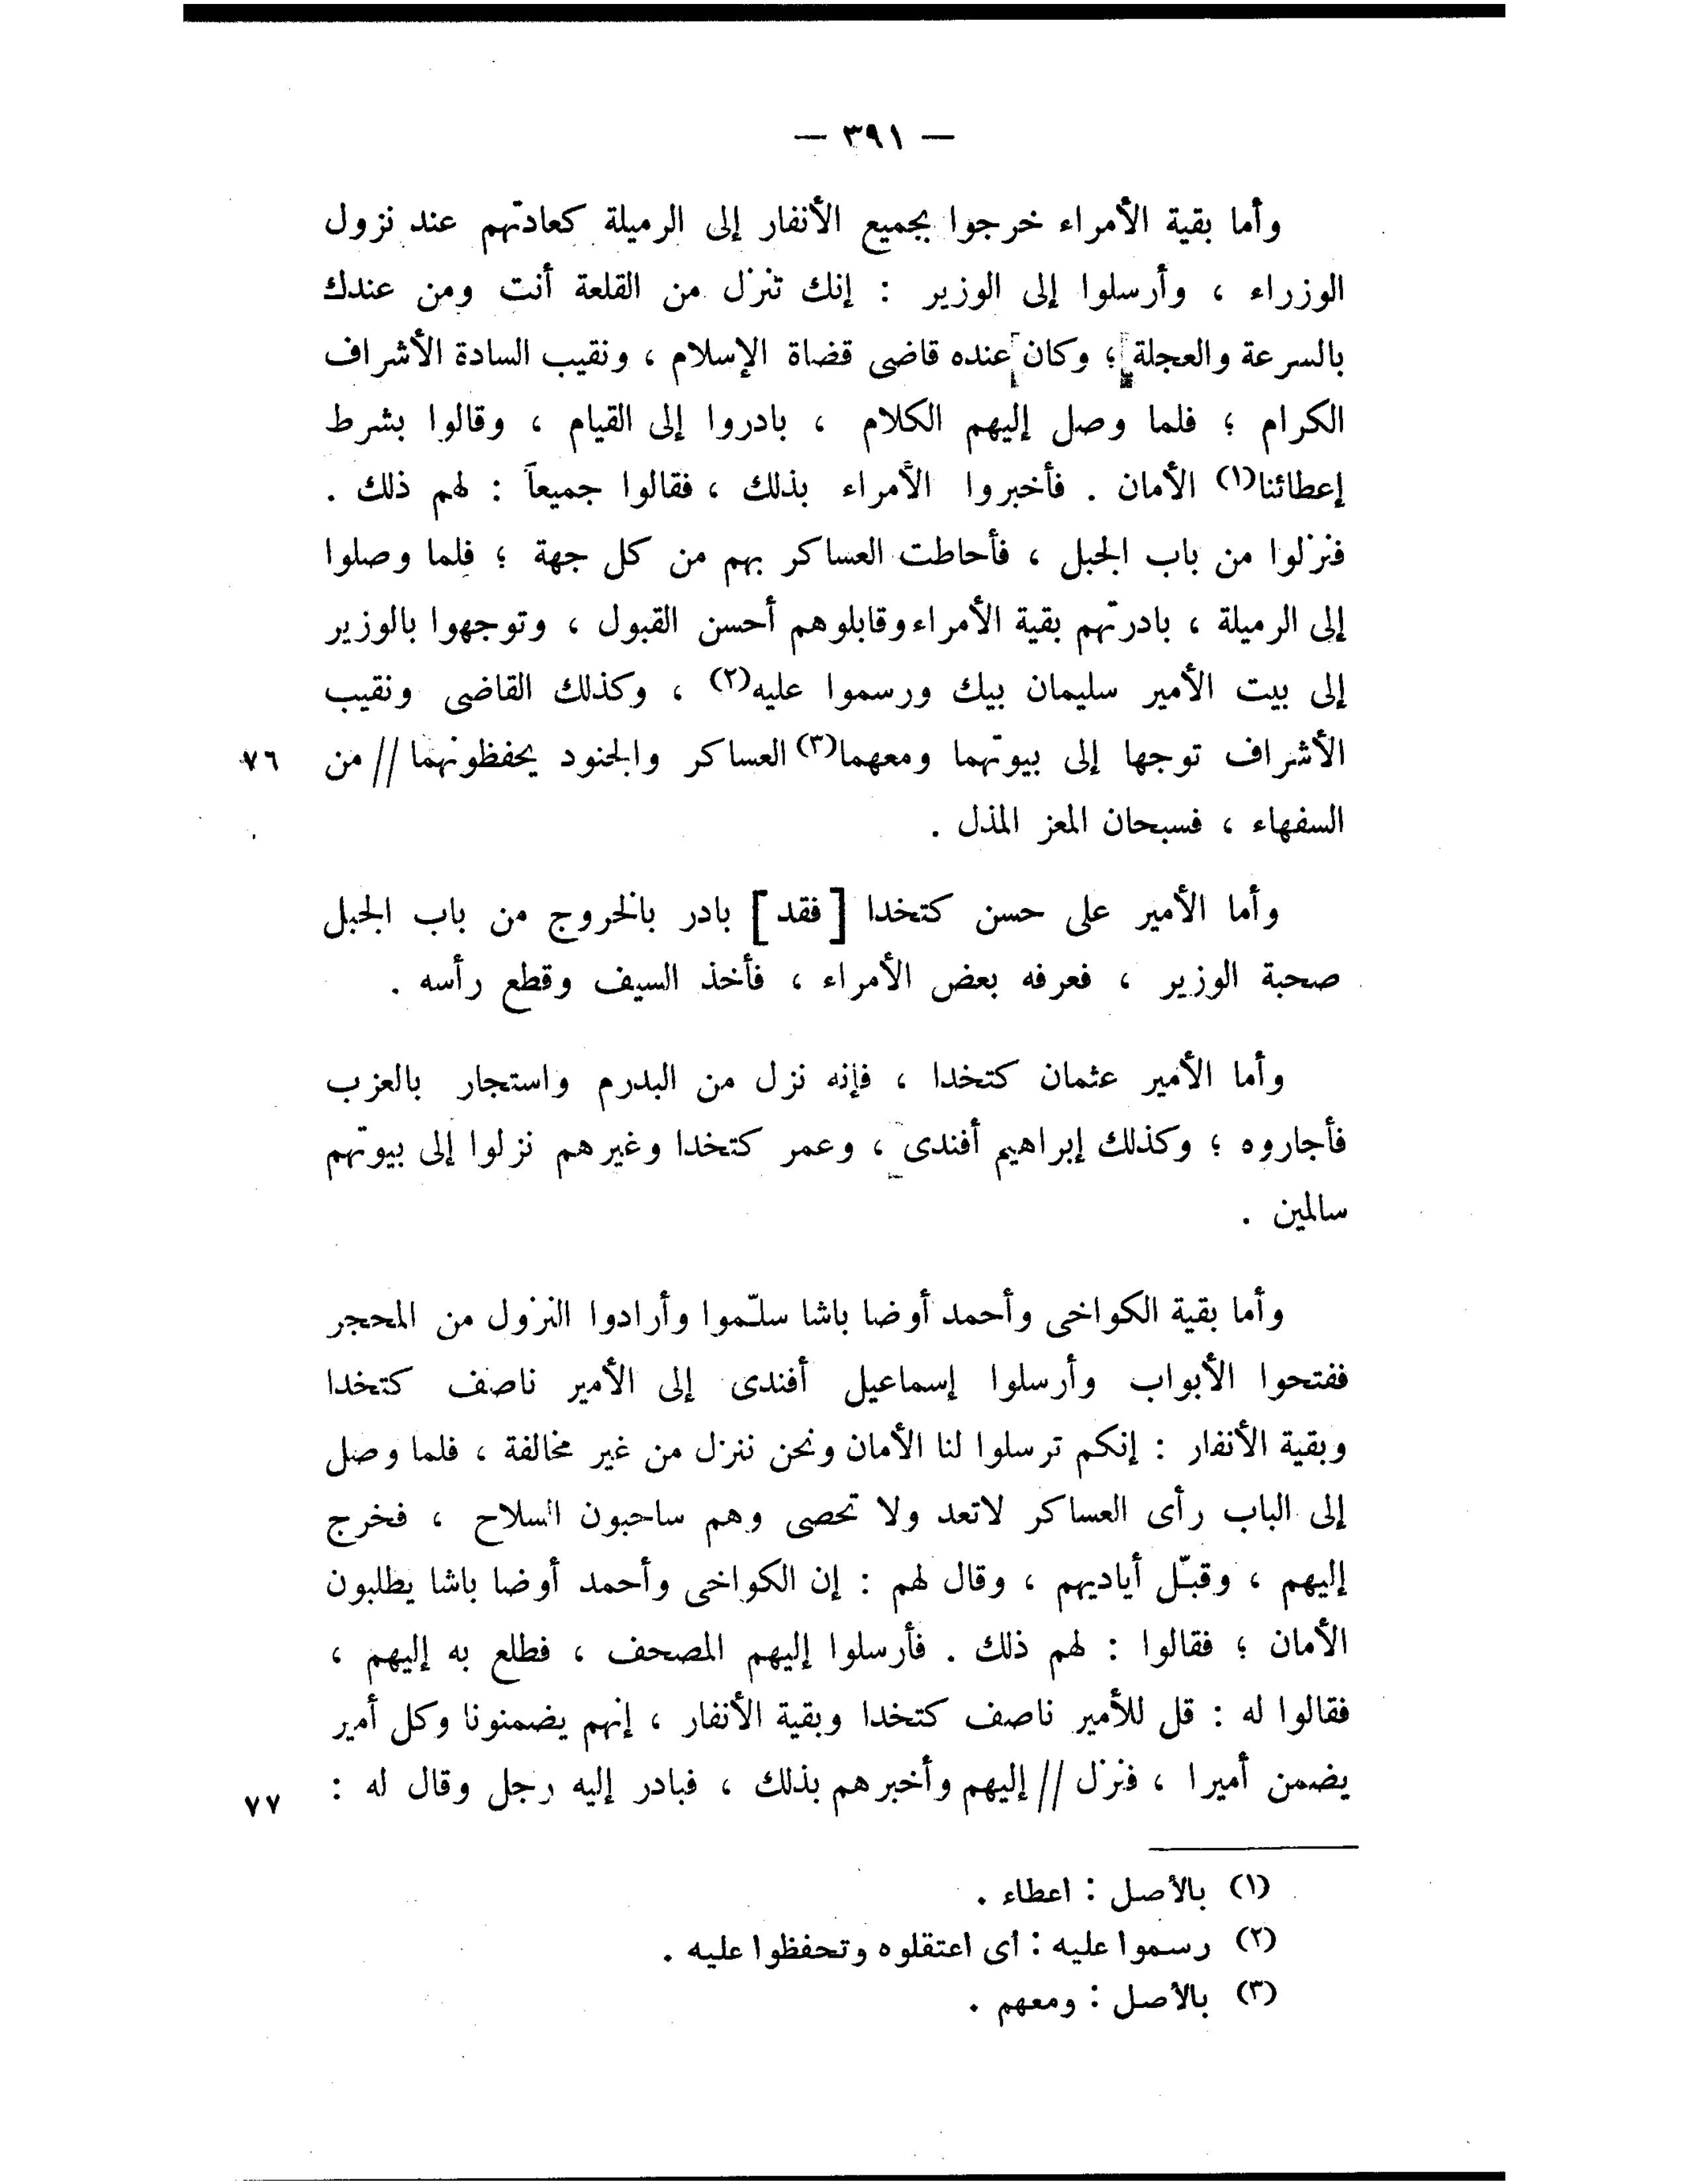 — ٣٩١ —
وأما بقية الأمراء خرجوا بجميع الأنفار إلى الرميلة كعادتهم عند نزول
الوزراء ، وأرسلوا إلى الوزير : إنك تنزل من القلعة أنت ومن عندك
بالسرعة والعجلة ؛ وكان عنده قاضى قضاة الإسلام ، ونقيب السادة الأشراف
الكرام ؛ فلما وصل إليهم الكلام ، بادروا إلى القيام ، وقالوا بشرط
إعطائنا(١) الأمان . فأخبروا الأمراء بذلك ، فقالوا جميعاً : لهم ذلك .
فنزلوا من باب الجبل ، فأحاطت العساكر بهم من كل جهة ؛ فلما وصلوا
إلى الرميلة ، بادرتهم بقية الأمراء وقابلوهم أحسن القبول ، وتوجهوا بالوزير
إلى بيت الأمير سليمان بيك ورسموا عليه(٢) ، وكذلك القاضى ونقيب
الأشراف توجها إلى بيوتهما ومعهما(٣) العساكر والجنود يحفظونهما // من ٧٦
السفهاء ، فسبحان المعز المذل .
وأما الأمير على حسن كتخدا [ فقد ] بادر بالخروج من باب الجبل
صحبة الوزير ، فعرفه بعض الأمراء ، فأخذ السيف وقطع رأسه .
وأما الأمير عثمان كتخدا ، فإنه نزل من البدرم واستجار بالعزب
فأجاروه ؛ وكذلك إبراهيم أفندى ، وعمر كتخدا وغيرهم نزلوا إلى بيوتهم
سالمين .
وأما بقية الكواخى وأحمد أوضا باشا سلّموا وأرادوا النزول من المحجر
ففتحوا الأبواب وأرسلوا إسماعيل أفندى إلى الأمير ناصف كتخدا
وبقية الأنفار : إنكم ترسلوا لنا الأمان ونحن ننزل من غير مخالفة ، فلما وصل
إلى الباب رأى العساكر لاتعد ولا تحصى وهم ساحبون السلاح ، فخرج
إليهم ، وقبّل أياديهم ، وقال لهم : إن الكواخى وأحمد أوضا باشا يطلبون
الأمان ؛ فقالوا : لهم ذلك . فأرسلوا إليهم المصحف ، فطلع به إليهم ،
فقالوا له : قل للأمير ناصف كتخدا وبقية الأنفار ، إنهم يضمنونا وكل أمير
يضمن أميرا ، فنزل // إليهم وأخبرهم بذلك ، فبادر إليه رجل وقال له : ٧٧
(١) بالأصل : اعطاء .
(٢) رسموا عليه : أى اعتقلوه وتحفظوا عليه .
(٣) بالأصل : ومعهم .